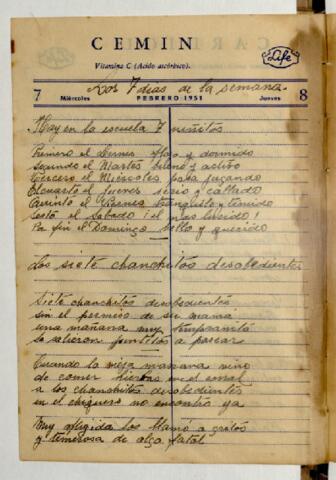 CEMIN
Vitamina C (Acido ascórbico).
Life
Los 7 días de la semana
7 Miércoles FEBRERO 1951 Jueves 8
Hay en la escuela 7 niñitos
Primero el Lunes flojo y dormido
Segundo el Martes bueno y activo
Tercero el Miércoles pasa jugando
El cuarto el Jueves serio y callado
Quinto el Viernes tranquilo y tímido
Sexto el Sábado ¡el más lúcido!
Por fin el Domingo bello y querido
Los siete chanchitos desobedientes
Siete chanchitos desobedientes
sin el permiso de su mamá
una mañana muy tempranito
se salieron juntitos a pasear
Cuando la vieja marrana vino
de comer hierbas en el corral
a los chanchitos desobedientes
en el chiquero no encontró ya
Muy afligida los llamó a gritos
y temerosa de algo fatal